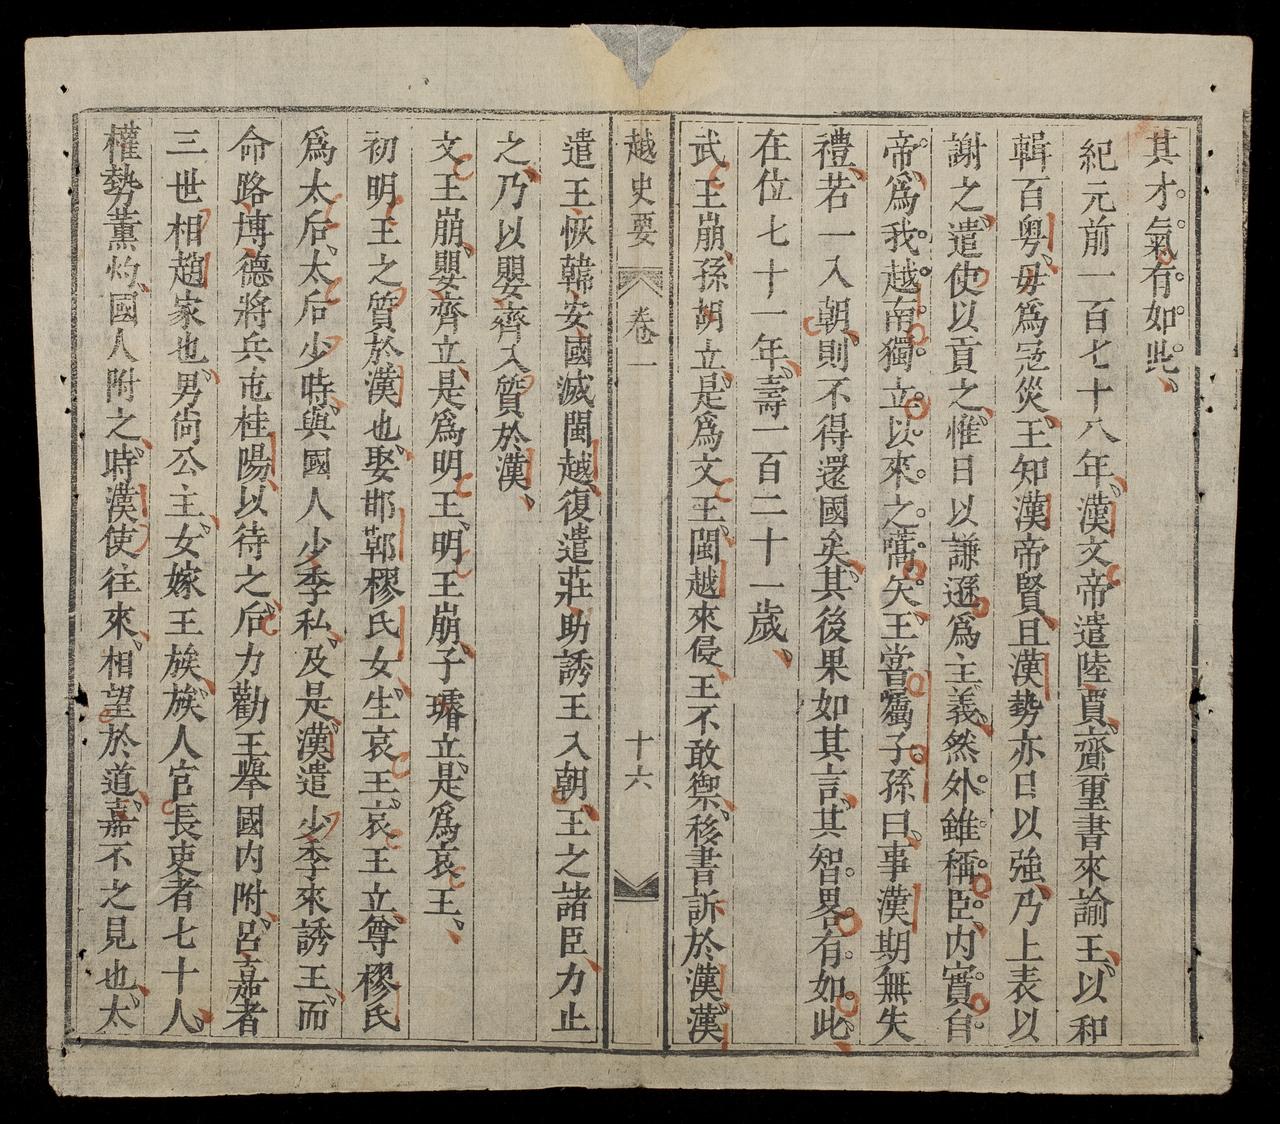 其才。氣。有。如。此、
紀元前一百七十八年、漢文帝遣陸賈、齎重書來諭王、以和
輯百粤、毋爲寇災、王知漢帝賢、且漢勢亦日以強、乃上表以
謝之、遣使以貢之、惟日以謙遜爲主義、然。外。雖。稱。臣、内。實。自。
帝。爲。我。越。南。獨。立。以。來。之。嚆。矢、王嘗屬子孫曰、事漢期無失
禮、若一入朝、則不得還國矣、其後果如其言、其。智。畧。有。如。此、
在位七十一年、壽一百二十一歲、
武王崩、孫胡立、是爲文王、閩越來侵、王不敢禦、移書訴於漢、漢
越史要 卷一 十六
遣王恢韓安國滅閩越、復遣莊助誘王入朝、王之諸臣、力止
之、乃以嬰齊入質於漢、
文王崩、嬰齊立、是爲明王、明王崩、子璿立、是爲哀王、
初明王之質於漢也、娶邯鄲樛氏女、生哀王、哀王立、尊樛氏
爲太后、太后少時、與國人少季私、及是、漢遣少季來誘王、而
命路博德將兵屯桂陽、以待之、后力勸王舉國内附、呂嘉者
三世相趙家也、男尙公主、女嫁王族、族人官長吏者七十人、
權勢薰灼、國人附之、時漢使往來、相望於道、嘉不之見也、太